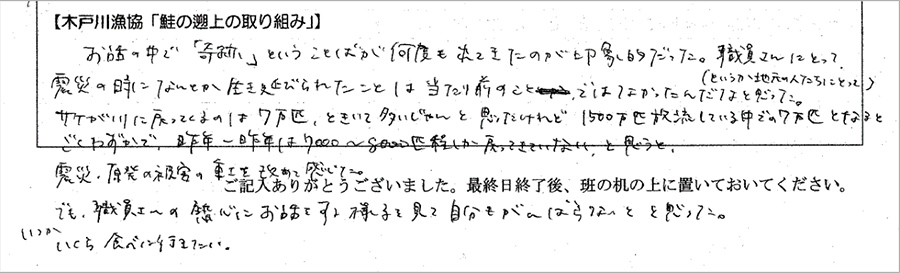 【木戸川漁協「鮭の遡上の取り組み」】
お話の中で「奇跡」ということばが何度も出てきたのが印象的だった。職員さんにとって
(というか地元の人たちにとって)
震災の時になんとか生き延びられたことは当たり前のことではなかったんだなと思った。
サケが川に戻ってくるのは7万匹、ときいて多いじゃんと思ったけれど1500万匹放流している中での7万匹となると
ごくわずかで、昨年一昨年は7000〜8000匹程しか戻ってきていない、と思うと、
震災、原発の被害の重さを改めて感じた。
ご記入ありがとうございました。最終日終了後、班の机の上に置いておいてください。
でも、職員さんの熱心にお話をする様子を見て自分もがんばらないとと思った。
いつか
いくら食べに行きたい。